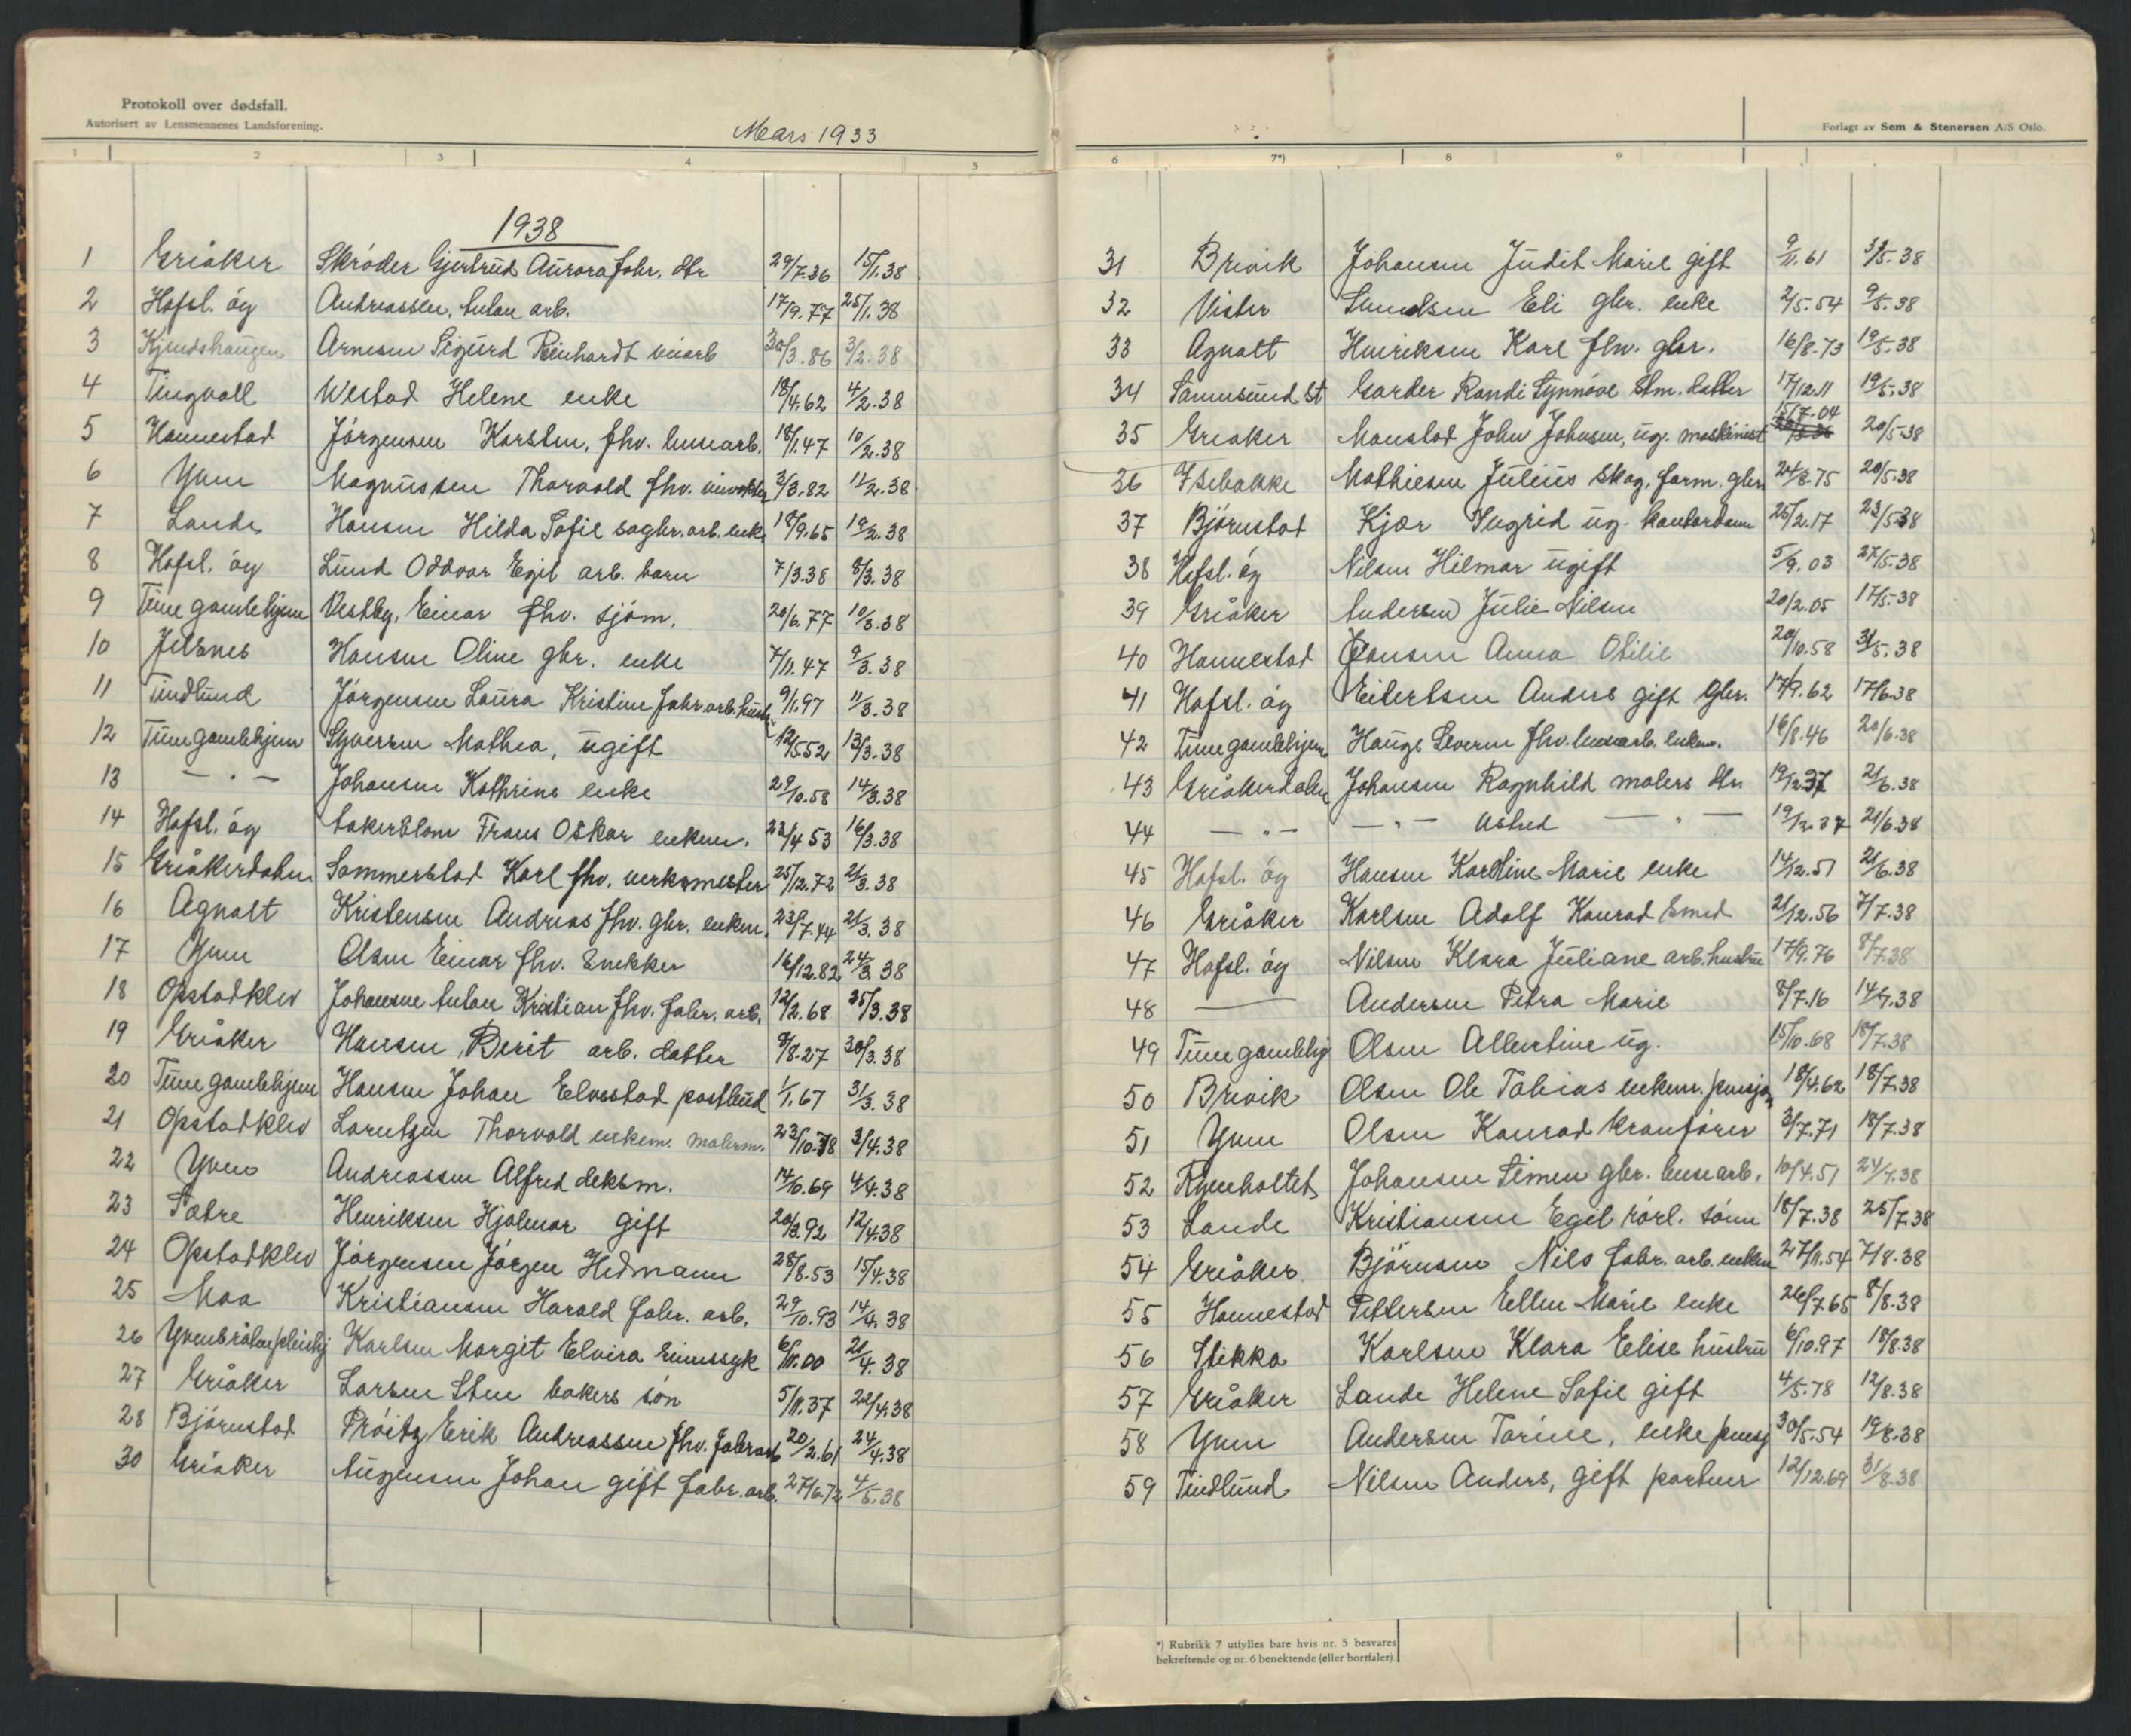 Protokoll over dødsfall.
Autorisert av Lensmennenes Landsforening.
Mars 1933
1 2 3 4 5
1938
1 Griåker Skröder Gjertrud Aurora fabr. dtr 29/7.36 15/1.38
2 Hafsl. óg Andreassen, Anton arb. 17/9.77 25/1.38
3 Kjendshaugen Arnesen Sigurd Reinhardt veiarb 30/3.86 3/2.38
4 Tingvoll Westad Helene enke 18/4.62 4/2.38
5 Hannestad Jörgensen Karsten, fhv. brusarb. 18/1.47 10/2.38
6 Yven Magnussen Thorvald fhv. 3/3.82 11/2.38
7 Lande Hansen Hilda Sofie sagbr. arb. enke 18/9.65 19/2.38
8 Hafsl. óg Lund Oddvar Egil arb. barn 7/3.38 8/3.38
9 Tune gamlehjem Vestby, Einar fhv. sjöm. 20/6.77 10/3.38
10 Jelsnes Hansen Oline gbr. enke 7/11.47 9/3.38
11 Tindlund Jörgensen Laura Kristine fabr. arb. hustr 9/1.97 11/3.38
12 Tune gamlehjem Syversen Mathea, ugift 12/5 52 13/3.38
13 — " — Johansen Kathrine enke 29/10.58 14/3.38
14 Hafsl. óg Aakerblom Frans Oskar enkem. 23/4 53 16/3.38
15 Griåkerdalen Sommerstad Karl fhv. verksmester 25/12.72 21/3.38
16 Agnalt Kristensen Andreas fhv. gbr. enkem. 23/7.44 21/3.38
17 Yven Olsen Einar fhv. Snekker 16/12.82 24/3 38
18 Opstadklev Johansen Anton Kristian fhv. fabr. arb. 12/2.68 25/3.38
19 Griåker Hansen, Berit arb. datter 9/8.27 30/3.38
20 Tune gamlehjem Hansen Johan Elvestad postbud 1/1.67 31/3.38
21 Opstadklev Lorentzen Thorvald enkem. malerm. 23/10.78 3/4.38
22 Yven Andreassen Alfred deksm. 14/10.69 4/4.38
23 Sætre Henriksen Hjalmar gift 20/3.92 12/4.38
24 Opstadklev Jörgensen Jörgen Hedmann 28/8.53 15/4.38
25 Moa Kristiansen Harald fabr. arb. 29/10.93 14/4.38
26 Yvenbråten pleiehj Karlsen Margit Elvira sinnssyk 6/11.00 21/4.38
27 Griåker Larsen Sten bakers sön 5/11.37 22/4.38
28 Björnstad Pröitz Erik Andreassen fhv. fabrarb 20/2.61 24/4.38
30 Griåker Augensen Johan gift fabr. arb. 27/6.72 4/5.38
Forlagt av Sem & Stenersen A/S Oslo.
6 7*) 8 9
31 Brevik Johansen Judit Marie gift 9/11.61 3/5.38
32 Vister Eli gbr. enke 2/5.54 9/5.38
33 Agnalt Henriksen Karl fhv. gbr. 16/8.73 19/5.38
34 Sannesund st Garder Randi Synnöve Stm. datter 17/12.11 19/5.38
35 Greaker Monstad John Johnsen, ug. maskinist 15/7.04 20/5-38
36 Isebakke Mathiesen Julius Skog, farm. gbr. 24/8.75 20/5.38
37 Björnstad Kjær Ingrid ug. kontordame 25/2.17 23/5 38
38 Hafsl. óg Nilsen Hilmar ugift 5/9.03 27/5.38
39 Griåker Andersen Julie Nilsen 20/2.05 17/5.38
40 Hannestad Jansen Anna Otilie 20/10.58 31/5.38
41 Hafsl. óg Eilertsen Anders gift gbr. 17/9.62 17/6.38
42 Tune gamlehjem Hauge Severin fhv. brusarb. enkem. 16/8.46 20/6.38
43 Griåkerdalen Johansen Ragnhild malers dtr. 19/12 37 21/6.38
44 — " — — " — Astrid — " — 19/12.37 21/6.38
45 Hafsl. óg Hansen Karoline Marie enke 14/12.51 21/6.38
46 Griåker Karlsen Adolf Konrad Smed 21/12.56 7/7.38
47 Hafsl. óg Nilsen Klara Juliane arb. hustru 17/9.76 8/7.38
48 — Andersen Petra Marie 8/7.16 14/7.38
49 Tune gamlehj Olsen Albertine ug. 15/10.68 18/7.38
50 Brevik Olsen Ole Tobias enkem. pensjon 18/4.62 18/7.38
51 Yven Olsen Konrad kranförer 3/7.71 18/7.38
52 Johansen Simen gbr. brusarb. 10/4.51 24/7.38
53 Lande Kristiansen Egil rörl. sönn 18/7.38 25/7.38
54 Griåker Björnsen Nils fabr. arb. enkem 27/11.54 7/8.38
55 Hannestad Pettersen Ellen Marie enke 26/7.65 8/8.38
56 Stikka Karlsen Klara Elise hustru 6/10.97 18/8.38
57 Griåker Lande Helene Sofie gift 4/5.78 12/8.38
58 Yven Andersen Torine, enke pensj 30/5.54 19/8.38
59 Tindlund Nilsen Anders, gift portner 12/12.69 31/8.38
*) Rubrikk 7 utfylles bare hvis nr. 5 besvares
bekreftende og nr. 6 benektende (eller bortfaler)